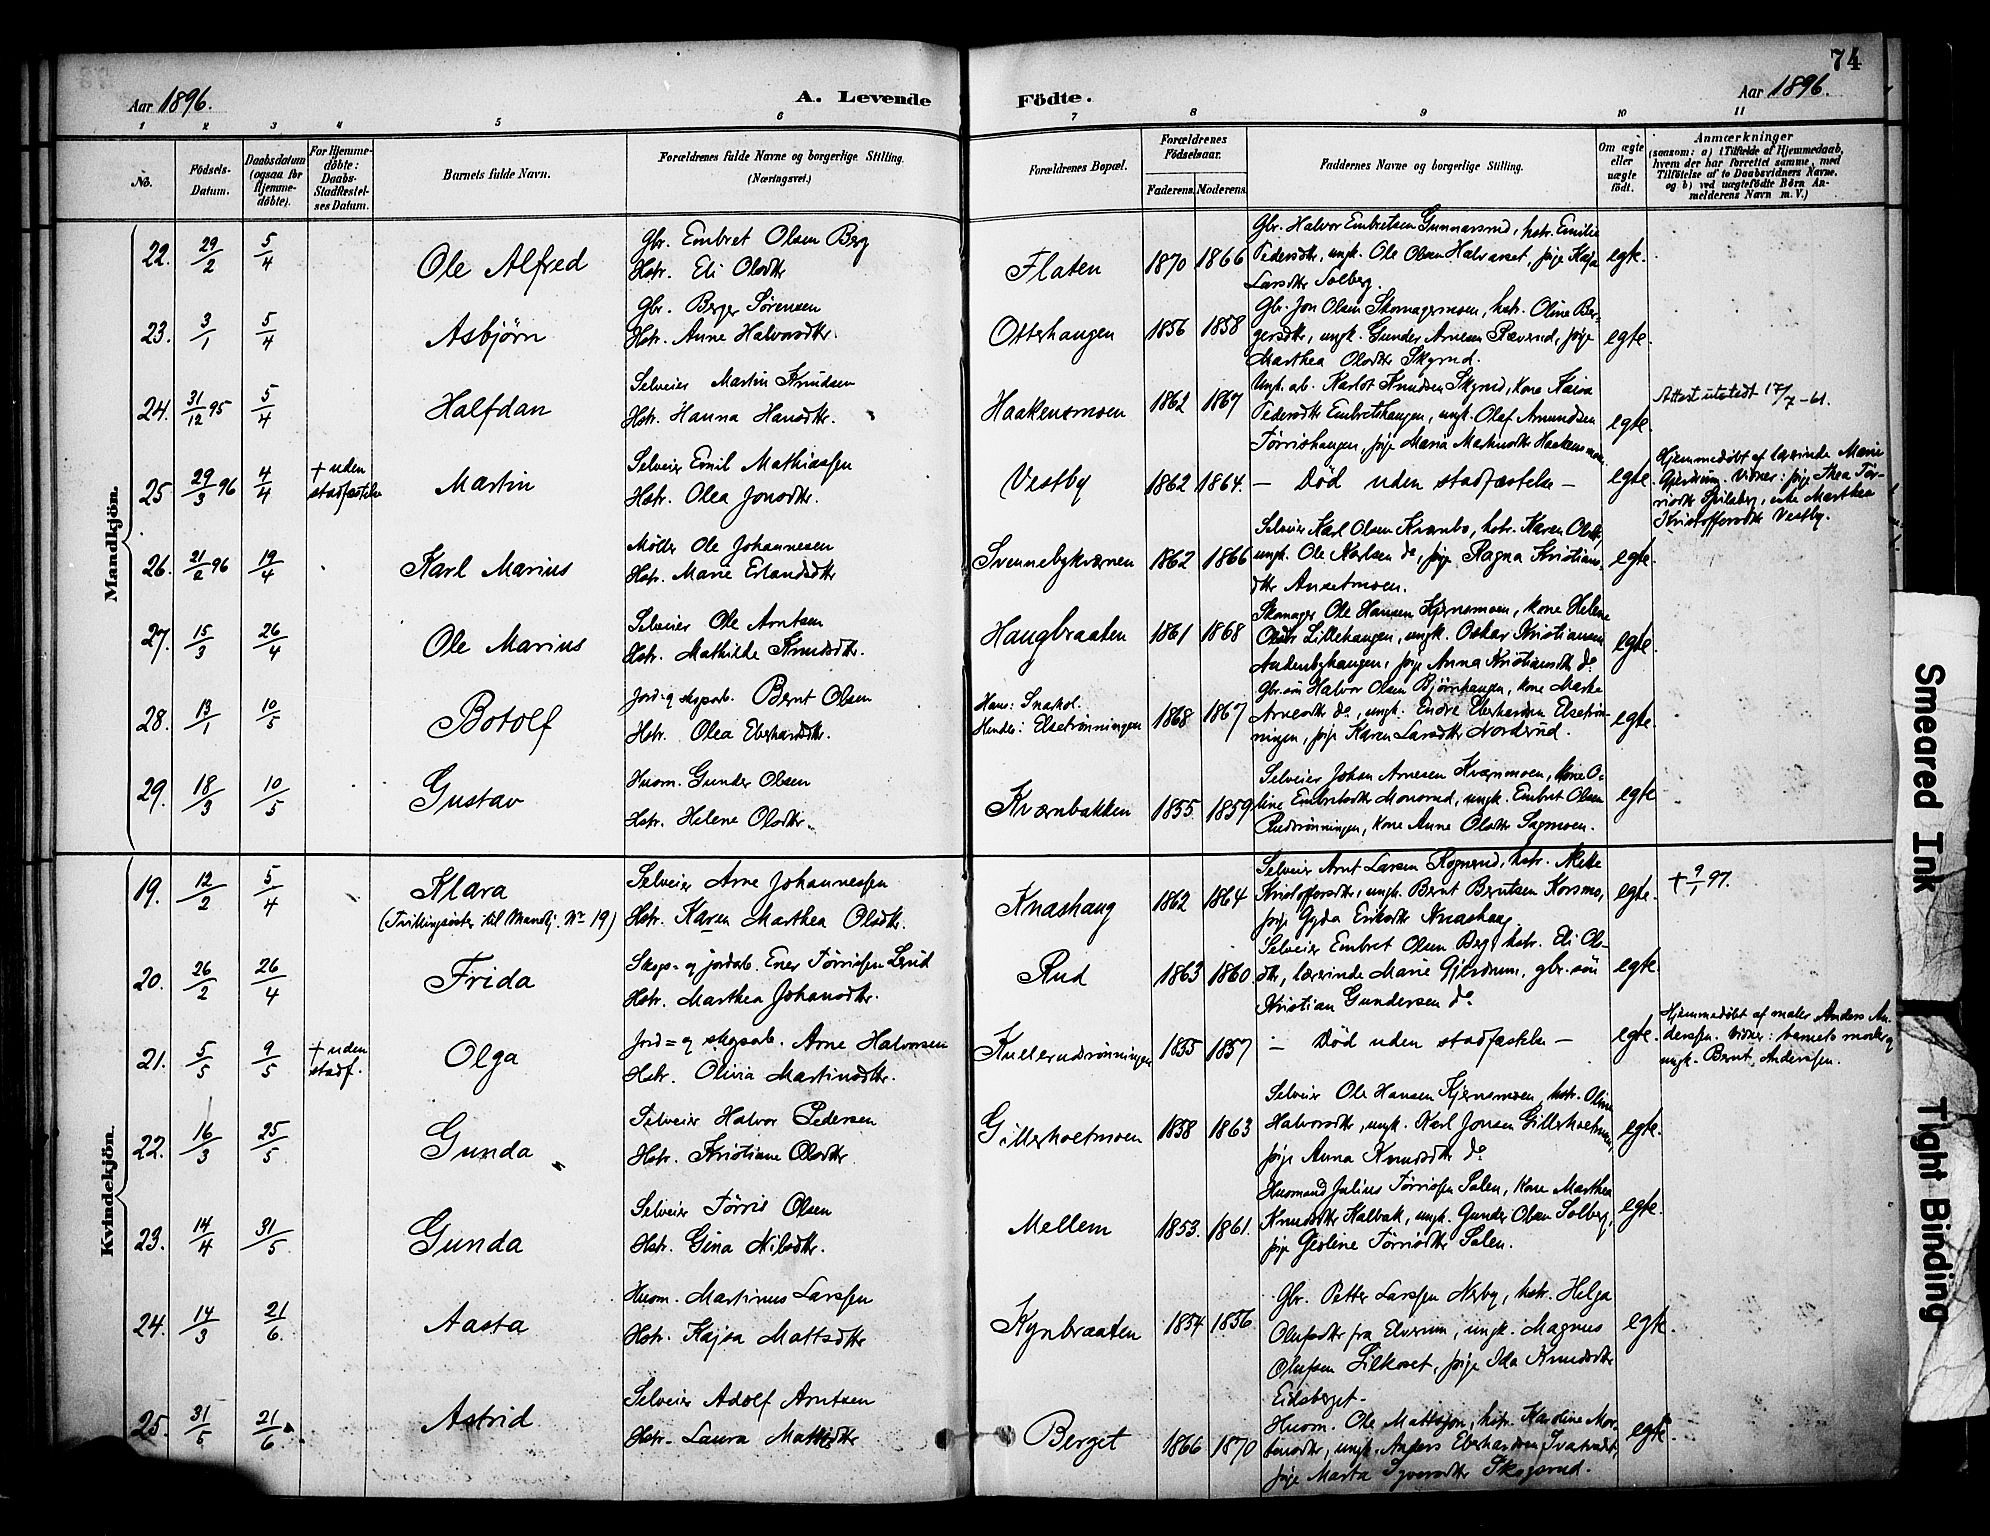 74
Aar 1896.
A. Levende Födte.
Aar 1896.
1 2 3 4 5 6 7 8 9 10 11
No.
Födsels-Datum.
Daabsdatum (ogsaa for Hjemme-döbte).
For Hjemme-döbte: Daabs-Stadfæstel-ses Datum.
Barnets fulde Navn.
Forældrenes fulde Navne og borgerlige Stilling. (Næringsvei.)
Forældrenes Bopæl.
Forældrenes Födselsaar.
Faderens. Moderens.
Faddernes Navne og borgerlige Stilling.
Om ægte eller uægte födt.
Anmærkninger
(saasom: a) i Tilfælde af Hjemmedaab, hvem der har forrettet samme, med Tilföielse af to Daabsvidners Navne, og b) ved uægtefödte Börn An-melderens Navn m. V.)
Mandkjön.
22. 29/2 5/4 Ole Alfred
Gbr. Embret Olsen Berg
Hstr. Eli Olsdtr
Flaten 1870 1866
Gbr. Halvor Embretsen Gunnarsrud, hstr. Emilie
Pedersdtr, ungk. Ole Olsen Halvarset, pige Kaja
Larsdtr Solberg.
egte.
23. 3/1 5/4 Asbjørn
Gbr. Berger Sørensen
Hstr. Anne Halvorsdtr.
Otterhaugen 1856 1858
Gbr. Jon Olsen Skomagermoen, hstr. Oline Ber-
gersdtr, ungk. Gunder ArnesenRæverud, pige
Marthea Olsdtr Skyrud.
egte.
24. 31/12 95 5/4 Halfdan
Selveier Martin Knudsen
Hstr. Hanna Hansdtr.
Haakensmoen 1862 1867
Ungk. arb. Karlot Knudsen Skyrud, kone Kaisa
Pedersdtr Embretshaugen, ungk. Olaf Amundsen
Tørrishaugen, pige Maria Martinsdtr Haakensmoen.
egte.
Attest utstedt 17/7-61.
25 29/3 96 4/4 + uden stadfæstelse Martin
Selveier Emil Mathiassen
Hstr. Olea Jonsdtr.
Vestby 1862 1864.
— Død uden stadfæstelse —
egte
Hjemmedøbt af lærerinde Marie
Gjerdrum. Vidner: pige Thea Tør-
risdtr Spilsberg, enke Marthea
Kristoffersdtr Vestby.
26. 21/2 96 19/4 Karl Marius
Møller Ole Johannesen
Hstr. Marie Erlandsdtr
Svennebykvernen 1862 1866
Selveier Karl Olsen Kværnbo, hstr. Karen Olsdtr,
ungk. Ole Karlsen do, pige Ragna Kristians-
dtr Ansetmoen.
egte.
27. 15/3 26/4 Ole Marius
Selveier Ole Arntsen
Hstr. Mathilde Knudsdtr.
Haugbraaten 1861 1868
Skomager Ole Hansen Kjernsmoen, kone Helene
Olsdtr Lillehaugen, ungk. Oskar Kristiansen
Audenbyhaugen, pige Anna Kristiansdtr do
egte.
28. 13/1 10/5 Botolf
Jord- og skogsarb. Bernt Olsen
Hstr. Olea Eberhardsdtr.
Hans: Snarhol.
Hendes: Elsetrønningen
1868 1867
Gbr.søn Halvor Olsen Bjørnhaugen, kone Marthe
Arnesdtr do, ungk. Endre Eberhardsen Elsetrøn-
ningen, pige Karen Larsdtr Norderud.
egte.
29. 18/3 10/5 Gustav
Husm. Gunder Olsen
Hstr. Helene Olsdtr.
Kvernbakken 1855 1859
Selveier Johan Arnesen Kvernmoen, kone O-
line Embretsdtr Monsrud, ungk. Embret Olsen
Rudsrønningen, kone Anne Olsdtr Sagmoen.
egte
Kvindekjön.
19. 12/2 5/4 Klara
(Tvillingsøster til Mandkj. No 19)
Selveier Arne Johannessen
Hstr. Karen Marthea Olsdtr.
Knashaug 1862 1864
Selveier Arnt Larsen Rognerud, hstr. Mette
Kristoffersdtr, ungk. Bernt Berntsen Korsmo,
pige Gyda Eriksdtr Knashaug
egte.
+ 9/1 97.
20. 26/2 26/4 Frida
Skogs- og jordarb. Ener Tørrissen Lerud
Hstr. Marthea Johansdtr.
Rud 1863 1860
Selveier Embret Olsen Berg, hstr. Eli Ols-
dtr, lærerinde Marie Gjerdrum, gbr.søn
Kristian Gundersen do
egte.
21. 5/5 9/5 + uden stadf. Olga
Jord- og skogsarb. Arne Halvorsen
Hstr. Olivia Martinsdtr.
Kullerudrønningen 1855 1857
— Død uden stadfæstelse —
egte.
Hjemmedøbt af maler Anders An-
derssen. Vidner: barnets moder og
ungk. Bernt Anderssen.
22. 16/3 25/5 Gunda
Selveier Halvor Pedersen
Hstr. Kristiane Olsdtr.
Gillerholtmoen 1858 1863
Selveier Ole Hansen Kjernsmoen, hstr. Oline
Halvorsdtr, ungk. Karl Jonsen Gillerholtmoen,
pige Anna Knudsdtr do
egte.
23. 14/4 31/5 Gunda
Selveier Tørris Olsen
Hstr. Gina Nilsdtr.
Mellem 1853. 1861.
Husmand Julius Tørrissen Salen, kone Marthea
Knudsdtr Kalbak, ungk. Gunder Olsen Solberg,
pige Gioline Tørrisdtr Salen.
egte.
24. 14/3 21/6. Aasta
Husm. Martinus Larssen
Hstr. Kajsa Mattsdtr
Kynbraaten 1854 1856
Gbr. Petter Larssen Nerby, hstr. Helga
Olufsdtr fra Elverum, ungk. Magnus
Olufsen Lilkoset, pige Ida Knudsdtr
Eidsberget.
egte.
25. 31/5 21/6 Astrid
Selveier Adolf Arntsen
Hstr. Laura Mattisdtr
Berget 1866 1870
Husm. Ole Mattsson, hstr. Karoline Mor-
tensdtr, ungk. Anders Eberhardsen Ivarsset,
pige Marta Syversdtr Skogsrud.
egte.
Smeared Ink
Tight Binding